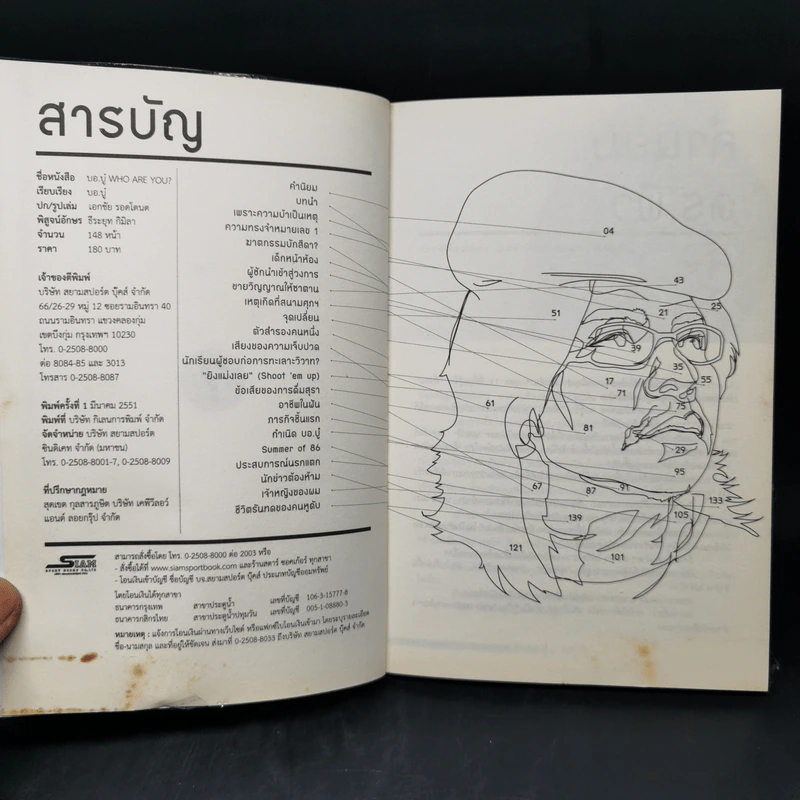 สารบัญ
ชื่อหนังสือ บอ.บู๋ WHO ARE YOU?
เรียบเรียง บอ.บู๋
ปก/รูปเล่ม เอกชัย รอดโตนด
พิสูจน์อักษร ธีระยุท กิมิลา
จำนวน 148 หน้า
ราคา 180 บาท
เจ้าของตีพิมพ์
บริษัท สยามสปอร์ต บุ๊คส์ จำกัด
66/26-29 หมู่ 12 ซอยรามอินทรา 40
ถนนรามอินทรา แขวงคลองกุ่ม
เขตบึงกุ่ม กรุงเทพฯ 10230
โทร. 0-2508-8000
ต่อ 8084-85 และ 3013
โทรสาร 0-2508-8087
พิมพ์ครั้งที่ 1 มีนาคม 2551
พิมพ์ที่ บริษัท กิเลนการพิมพ์ จำกัด
จัดจำหน่าย บริษัท สยามสปอร์ต
ซินดิเคท จำกัด (มหาชน)
โทร. 0-2508-8001-7, 0-2508-8009
ที่ปรึกษากฎหมาย
สุดเขต กุลสารภูษิต บริษัท เคพีวีลอว์
แอนด์ ลอยกรุ๊ป จำกัด
คำนิยม
บทนำ
เพราะความบ้าเป็นเหตุ
ความทรงจำหมายเลข 1
ฆาตกรรมนักสีดา?
เด็กหน้าห้อง
ผู้ชักนำเข้าสู่วงการ
ขายวิญญาณให้ซาตาน
เหตุเกิดที่สนามศุภฯ
จุดเปลี่ยน
ตัวสำรองคนหนึ่ง
เสียงของความเจ็บปวด
นักเรียนผู้ชอบก่อการทะเลาะวิวาท?
"ยิงแม่งเลย" (Shoot 'em up)
ข้อเสียของการดื่มสุรา
อาชีพในฝัน
ภารกิจชิ้นแรก
กำเนิด บอ.บู๋
Summer of 86
ประสบการณ์นรกแตก
นักข่าวต้องห้าม
เจ้าหญิงของผม
ชีวิตรันทดของคนหูดับ
SIAM
สามารถสั่งซื้อโดย โทร. 0-2508-8000 ต่อ 2003 หรือ
- สั่งซื้อได้ที่ www.siamsportbook.com และร้านสตาร์ ซอคเก้อร์ ทุกสาขา
- โอนเงินเข้าบัญชี ชื่อบัญชี บจ.สยามสปอร์ต บุ๊คส์ ประเภทบัญชีออมทรัพย์
โดยโอนเงินได้ทุกสาขา
ธนาคารกรุงเทพ สาขาประตูน้ำ เลขที่บัญชี 106-3-15777-8
ธนาคารกสิกรไทย สาขาประตูน้ำปทุมวัน เลขที่บัญชี 005-1-08880-3
หมายเหตุ : แจ้งการโอนเงินผ่านทางเว็บไซต์ หรือแฟกซ์ใบโอนเงินเข้ามา โดยระบุรายละเอียด
ชื่อ-นามสกุล และที่อยู่ให้ชัดเจน ส่งมาที่ 0-2508-8033 ถึงบริษัท สยามสปอร์ต บุ๊คส์ จำกัด
04
43
25
21
51
39
35
55
17
71
61
75
81
29
95
67
87
91
133
105
139
121
101